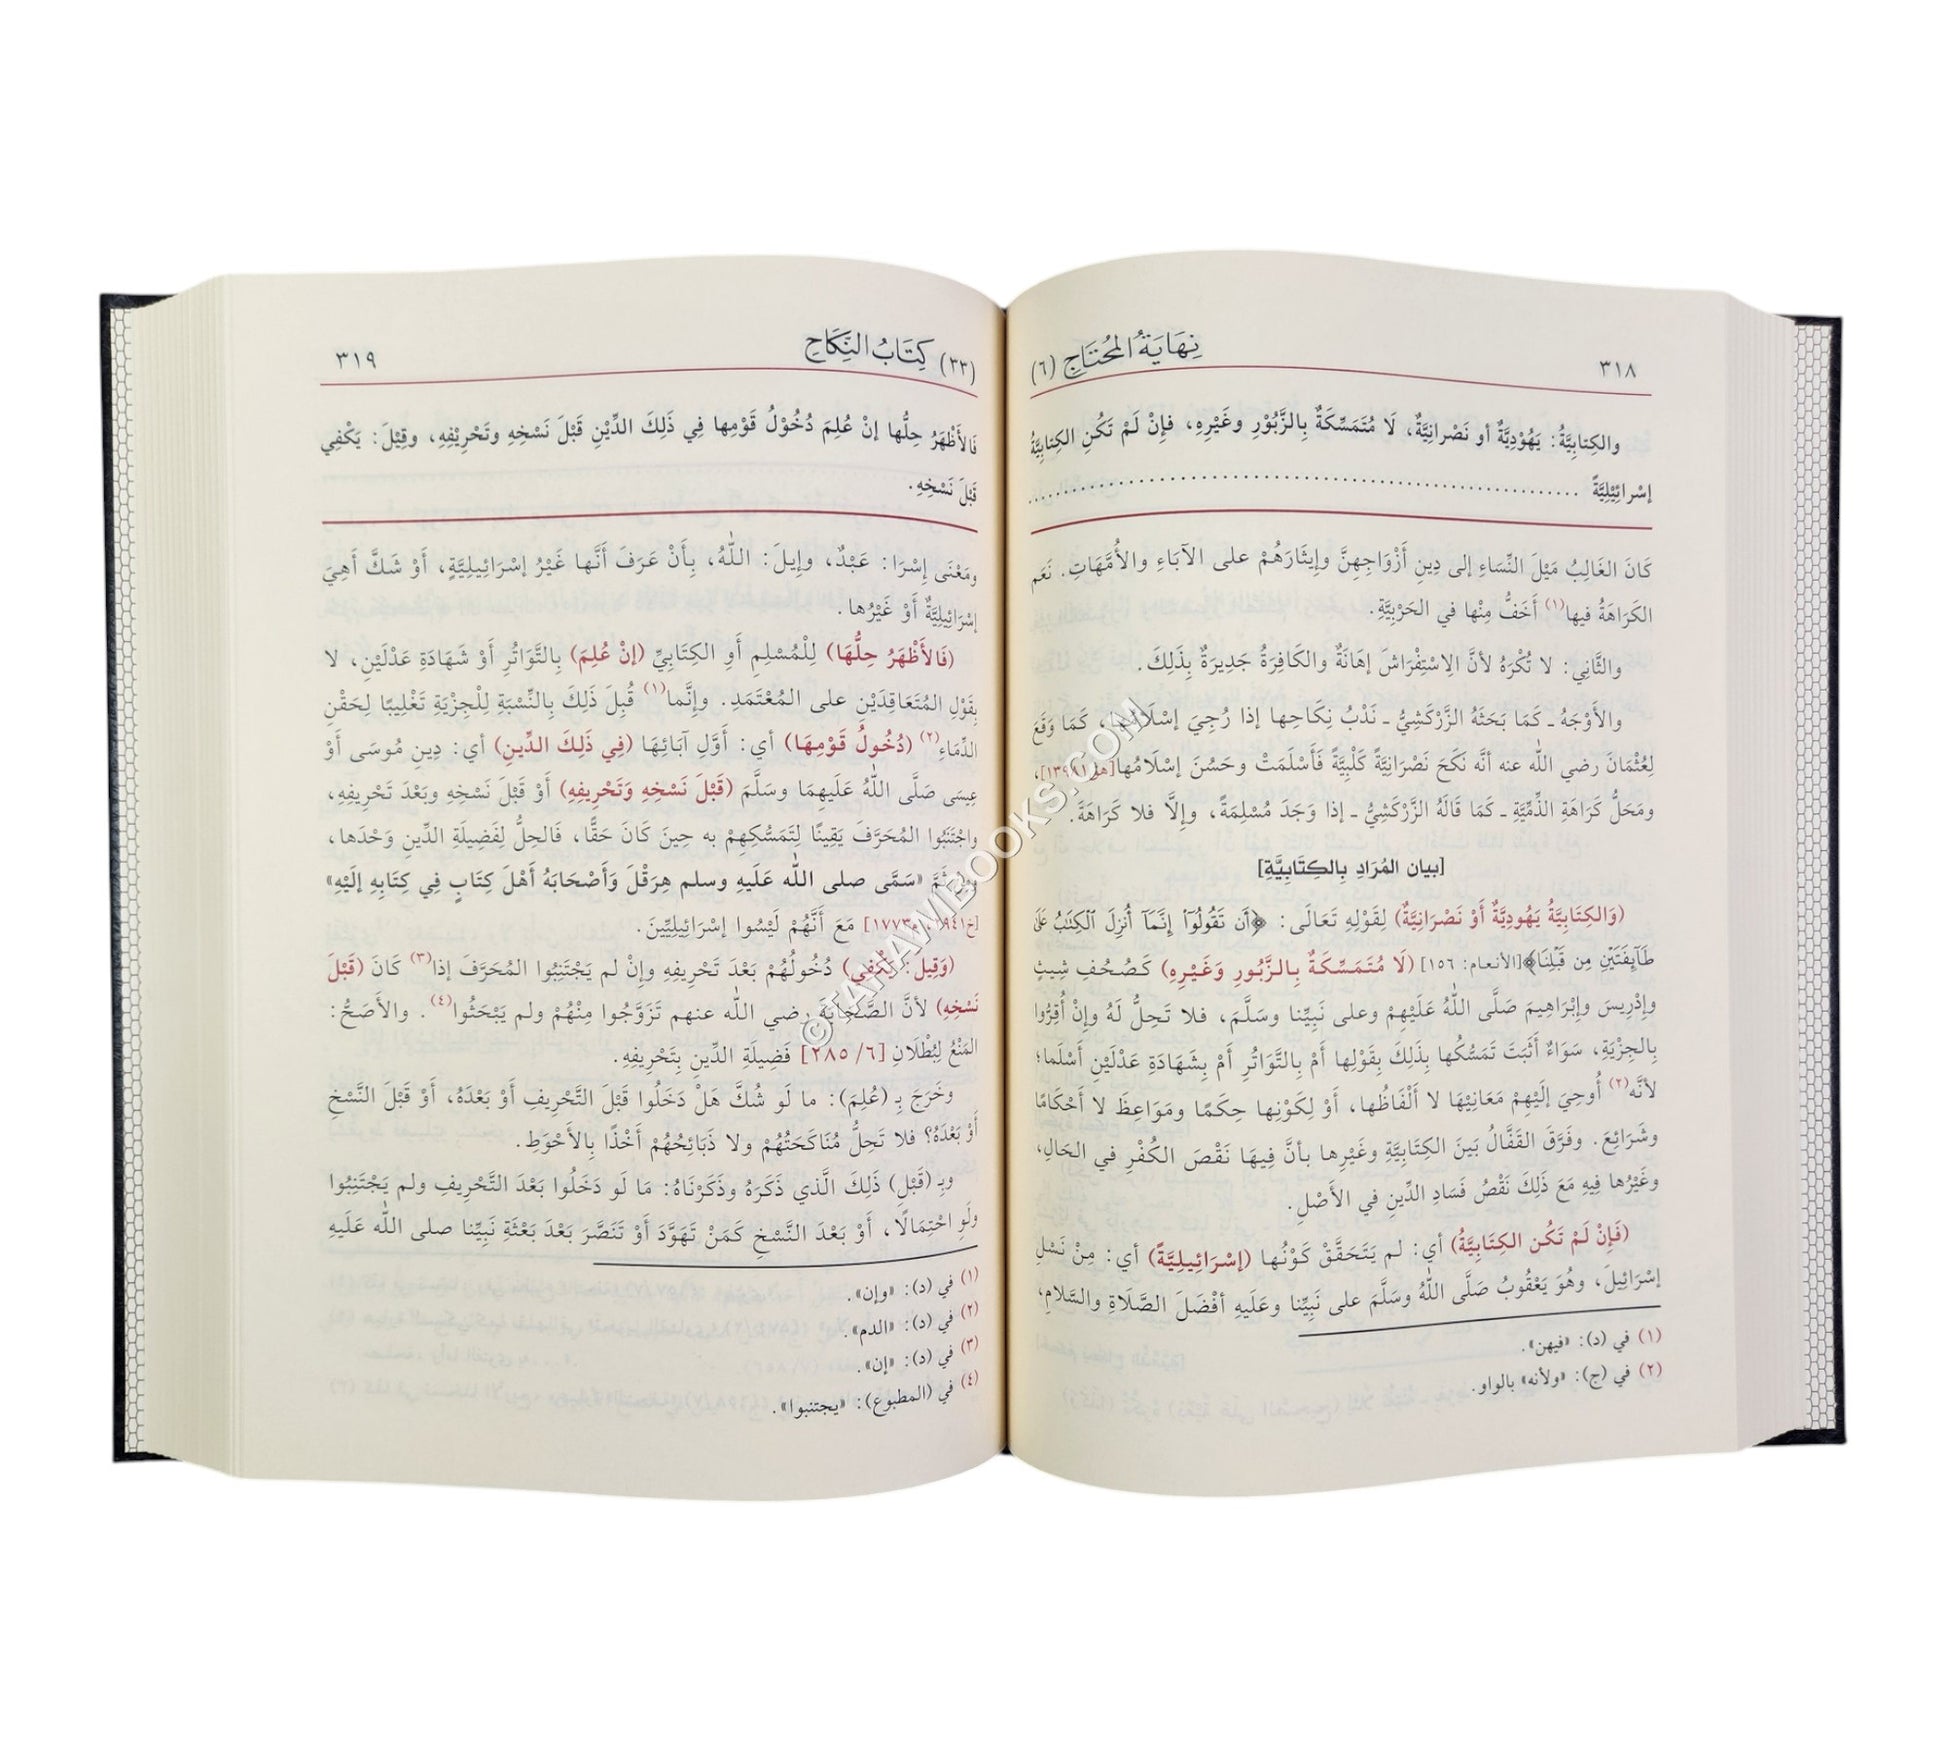 ٣١٨
نِهَايَةُ المُحْتَاجِ (٦)
والكِتابِيَّةُ: يَهُوْدِيَّةٌ أو نَصْرانِيَّةٌ، لَا مُتَمَسِّكَةٌ بِالزَّبُوْرِ وغَيْرِهِ، فإِنْ لَمْ تَكُنِ الكِتابِيَّةُ
إسْرائِيْلِيَّةً ........................................................................
كَانَ الغَالِبُ مَيْلَ النِّسَاءِ إلى دِينِ أَزْوَاجِهِنَّ وإِيثَارَهُمْ على الآبَاءِ والأُمَّهَاتِ. نَعَم
الكَرَاهَةُ فيها(١) أَخَفُّ مِنْها في الحَرْبِيَّةِ.
والثَّانِي: لا تُكْرَهُ لأنَّ الِاسْتِفْرَاشَ إهَانَةٌ والكَافِرَةُ جَدِيرَةٌ بِذَلِكَ.
والأَوْجَهُ ـ كَمَا بَحَثَهُ الزَّرْكَشِيُّ ـ نَدْبُ نِكَاحِها إذا رُجِيَ إسْلَامُها، كَمَا وَقَعَ
لِعُثْمَانَ رضي الله عنه أنَّه نَكَحَ نَصْرَانِيَّةً كَلْبِيَّةً فَأَسْلَمَتْ وحَسُنَ إسْلَامُها
ومَحَلُّ كَرَاهَةِ الذِّمِّيَّةِ ـ كَمَا قَالَهُ الزَّرْكَشِيُّ ـ إذا وَجَدَ مُسْلِمَةً، وإلَّا فلا كَرَاهَةَ.
[بيان المُرَادِ بِالكِتَابِيَّةِ]
(وَالكِتَابِيَّةُ يَهُودِيَّةٌ أَوْ نَصْرَانِيَّةٌ) لِقَوْلِهِ تَعَالَى: ﴿أَن تَقُولُوٓا۟ إِنَّمَآ أُنزِلَ ٱلْكِتَٰبُ عَلَىٰ
طَآئِفَتَيْنِ مِن قَبْلِنَا﴾[الأنعام: ١٥٦] (لَا مُتَمَسِّكَةٌ بِالزَّبُورِ وَغَيْرِهِ) كَصُحُفِ شِيثٍ
وإِدْرِيسَ وإِبْرَاهِيمَ صَلَّى اللَّهُ عَلَيْهِمْ وعلى نَبِيِّنا وسَلَّمَ، فلا تَحِلُّ لَهُ وإِنْ أُقِرُّوا
بِالجِزْيَةِ، سَوَاءٌ أَثَبَتَ تَمَسُّكُها بِذَلِكَ بِقَوْلِها أَمْ بِالتَّوَاتُرِ أَمْ بِشَهَادَةِ عَدْلَيْنِ أَسْلَما؛
لأنَّه(٢) أُوحِيَ إلَيْهِمْ مَعَانِيْهَا لا أَلْفَاظُها، أَوْ لِكَوْنِها حِكَمًا ومَوَاعِظَ لا أَحْكَامًا
وشَرَائِعَ. وفَرَّقَ القَفَّالُ بَينَ الكِتَابِيَّةِ وغَيْرِها بأنَّ فِيهَا نَقْصَ الكُفْرِ في الحَالِ،
وغَيْرُها فِيهِ مَعَ ذَلِكَ نَقْصُ فَسَادِ الدِّينِ في الأَصْلِ.
(فَإِنْ لَمْ تَكُنِ الكِتَابِيَّةُ) أي: لم يَتَحَقَّقْ كَوْنُها (إسْرَائِيلِيَّةً) أي: مِنْ نَسْلِ
إسْرَائِيلَ، وهُوَ يَعْقُوبُ صَلَّى اللَّهُ وسَلَّمَ على نَبِيِّنا وعَلَيهِ أفْضَلَ الصَّلَاةِ والسَّلَامِ،
(١) في (د): «فيهن».
(٢) في (ج): «ولأنه» بالواو.
(٣٣) كِتَابُ النِّكَاحِ
٣١٩
فَالأَظْهَرُ حِلُّها إنْ عُلِمَ دُخُوْلُ قَوْمِها فِي ذَلِكَ الدِّيْنِ قَبْلَ نَسْخِهِ وتَحْرِيْفِهِ، وقِيْلَ: يَكْفِي
قَبْلَ نَسْخِهِ.
ومَعْنَى إسْرَا: عَبْدٌ، وإيلَ: اللَّهُ، بِأَنْ عَرَفَ أنَّها غَيْرُ إسْرَائِيلِيَّةٍ، أَوْ شَكَّ أَهِيَ
إسْرَائِيلِيَّةٌ أَوْ غَيْرُها.
(فَالأَظْهَرُ حِلُّهَا) لِلْمُسْلِمِ أَوِ الكِتَابِيِّ (إنْ عُلِمَ) بِالتَّوَاتُرِ أَوْ شَهَادَةِ عَدْلَيْنِ، لا
بِقَوْلِ المُتَعَاقِدَيْنِ على المُعْتَمَدِ. وإنَّما(١) قُبِلَ ذَلِكَ بِالنِّسْبَةِ لِلْجِزْيَةِ تَغْلِيبًا لِحَقْنِ
الدِّمَاءِ(٢) (دُخُولُ قَوْمِهَا) أي: أَوَّلِ آبَائِهَا (فِي ذَلِكَ الدِّينِ) أي: دِينِ مُوسَى أَوْ
عِيسَى صَلَّى اللَّهُ عَلَيهِمَا وسَلَّمَ (قَبْلَ نَسْخِهِ وَتَحْرِيفِهِ) أَوْ قَبْلَ نَسْخِهِ وبَعْدَ تَحْرِيفِهِ،
واجْتَنَبُوا المُحَرَّفَ يَقِينًا لِتَمَسُّكِهِمْ به حِينَ كَانَ حَقًّا، فَالحِلُّ لِفَضِيلَةِ الدِّينِ وَحْدَها،
ومِنْ ثَمَّ «سَمَّى صلى الله عَلَيهِ وسلم هِرَقْلَ وَأَصْحَابَهُ أَهْلَ كِتَابٍ فِي كِتَابِهِ إلَيْهِ»
م١٧٧٣] مَعَ أَنَّهُمْ لَيْسُوا إسْرَائِيلِيِّينَ.
(وَقِيلَ: يَكْفِي) دُخُولُهُمْ بَعْدَ تَحْرِيفِهِ وإنْ لم يَجْتَنِبُوا المُحَرَّفَ إذا(٣) كَانَ (قَبْلَ
نَسْخِهِ) لأنَّ الصَّحَابَةَ رضي الله عنهم تَزَوَّجُوا مِنْهُمْ ولم يَبْحَثُوا(٤). والأَصَحُّ:
المَنْعُ لِبُطْلَانِ [٦/ ٢٨٥] فَضِيلَةِ الدِّينِ بِتَحْرِيفِهِ.
وخَرَجَ بـ (عُلِمَ): ما لَو شُكَّ هَلْ دَخَلُوا قَبْلَ التَّحْرِيفِ أَوْ بَعْدَهُ، أَوْ قَبْلَ النَّسْخِ
أَوْ بَعْدَهُ؟ فلا تَحِلُّ مُنَاكَحَتُهُمْ ولا ذَبَائِحُهُمْ أَخْذًا بِالأَحْوَطِ.
وبـِ (قَبْلِ) ذَلِكَ الَّذي ذَكَرَهُ وذَكَرْنَاهُ: مَا لَو دَخَلُوا بَعْدَ التَّحْرِيفِ ولم يَجْتَنِبُوا
ولَوِ احْتِمَالًا، أَوْ بَعْدَ النَّسْخِ كَمَنْ تَهَوَّدَ أَوْ تَنَصَّرَ بَعْدَ بَعْثَةِ نَبِيِّنا صلى الله عَلَيهِ
(١) في (د): «وإن».
(٢) في (د): «الدم».
(٣) في (د): «إن».
(٤) في (المطبوع): «يجتنبوا».
©TAHAWIBOOKS.COM